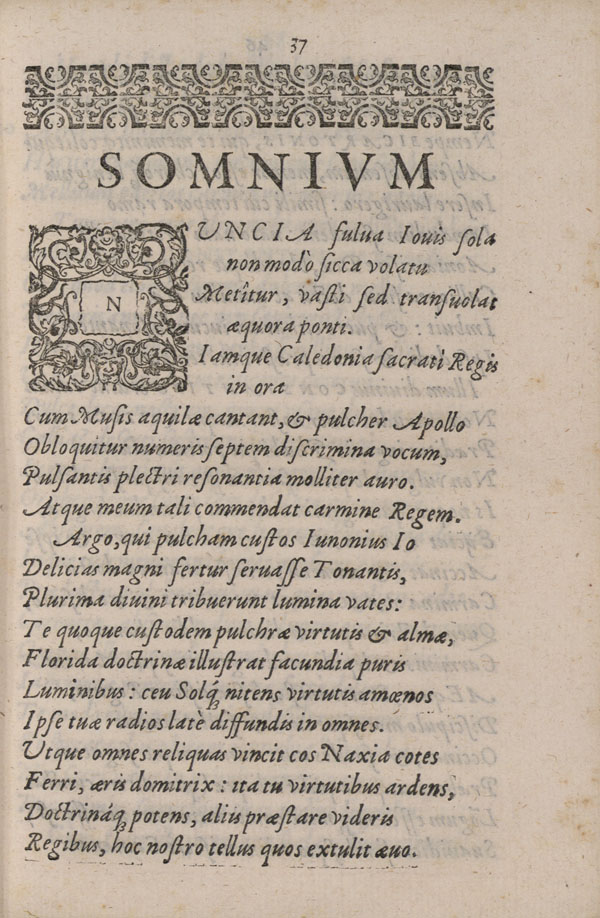 37
SOMNIVM
NUNCIA fulua Iouis sola
non modò sicca volatu
Metîtur, vasti sed transuolat
æquora ponti.
Iamque Caledonia sacrati Regis
in ora
Cum Musis aquilæ cantant, & pulcher Apollo
Obloquitur numeris septem discrimina vocum,
Pulsantis plectri resonantia molliter auro.
Atque meum tali commendat carmine Regem.
Argo, qui pulcham custos Iunonius Io
Delicias magni fertur seruasse Tonantis,
Plurima diuini tribuerunt lumina vates:
Te quoque custodem pulchræ virtutis & almæ,
Florida doctrinæ illustrat facundia puris
Luminibus: ceu Solq́; nitens virtutis amœnos
Ipse tuæ radios latè diffundis in omnes.
Utque omnes reliquas vincit cos Naxia cotes
Ferri, æris domitrix: ita tu virtutibus ardens,
Doctrináq; potens, aliis præstare videris
Regibus, hoc nostro tellus quos extulit æuo.